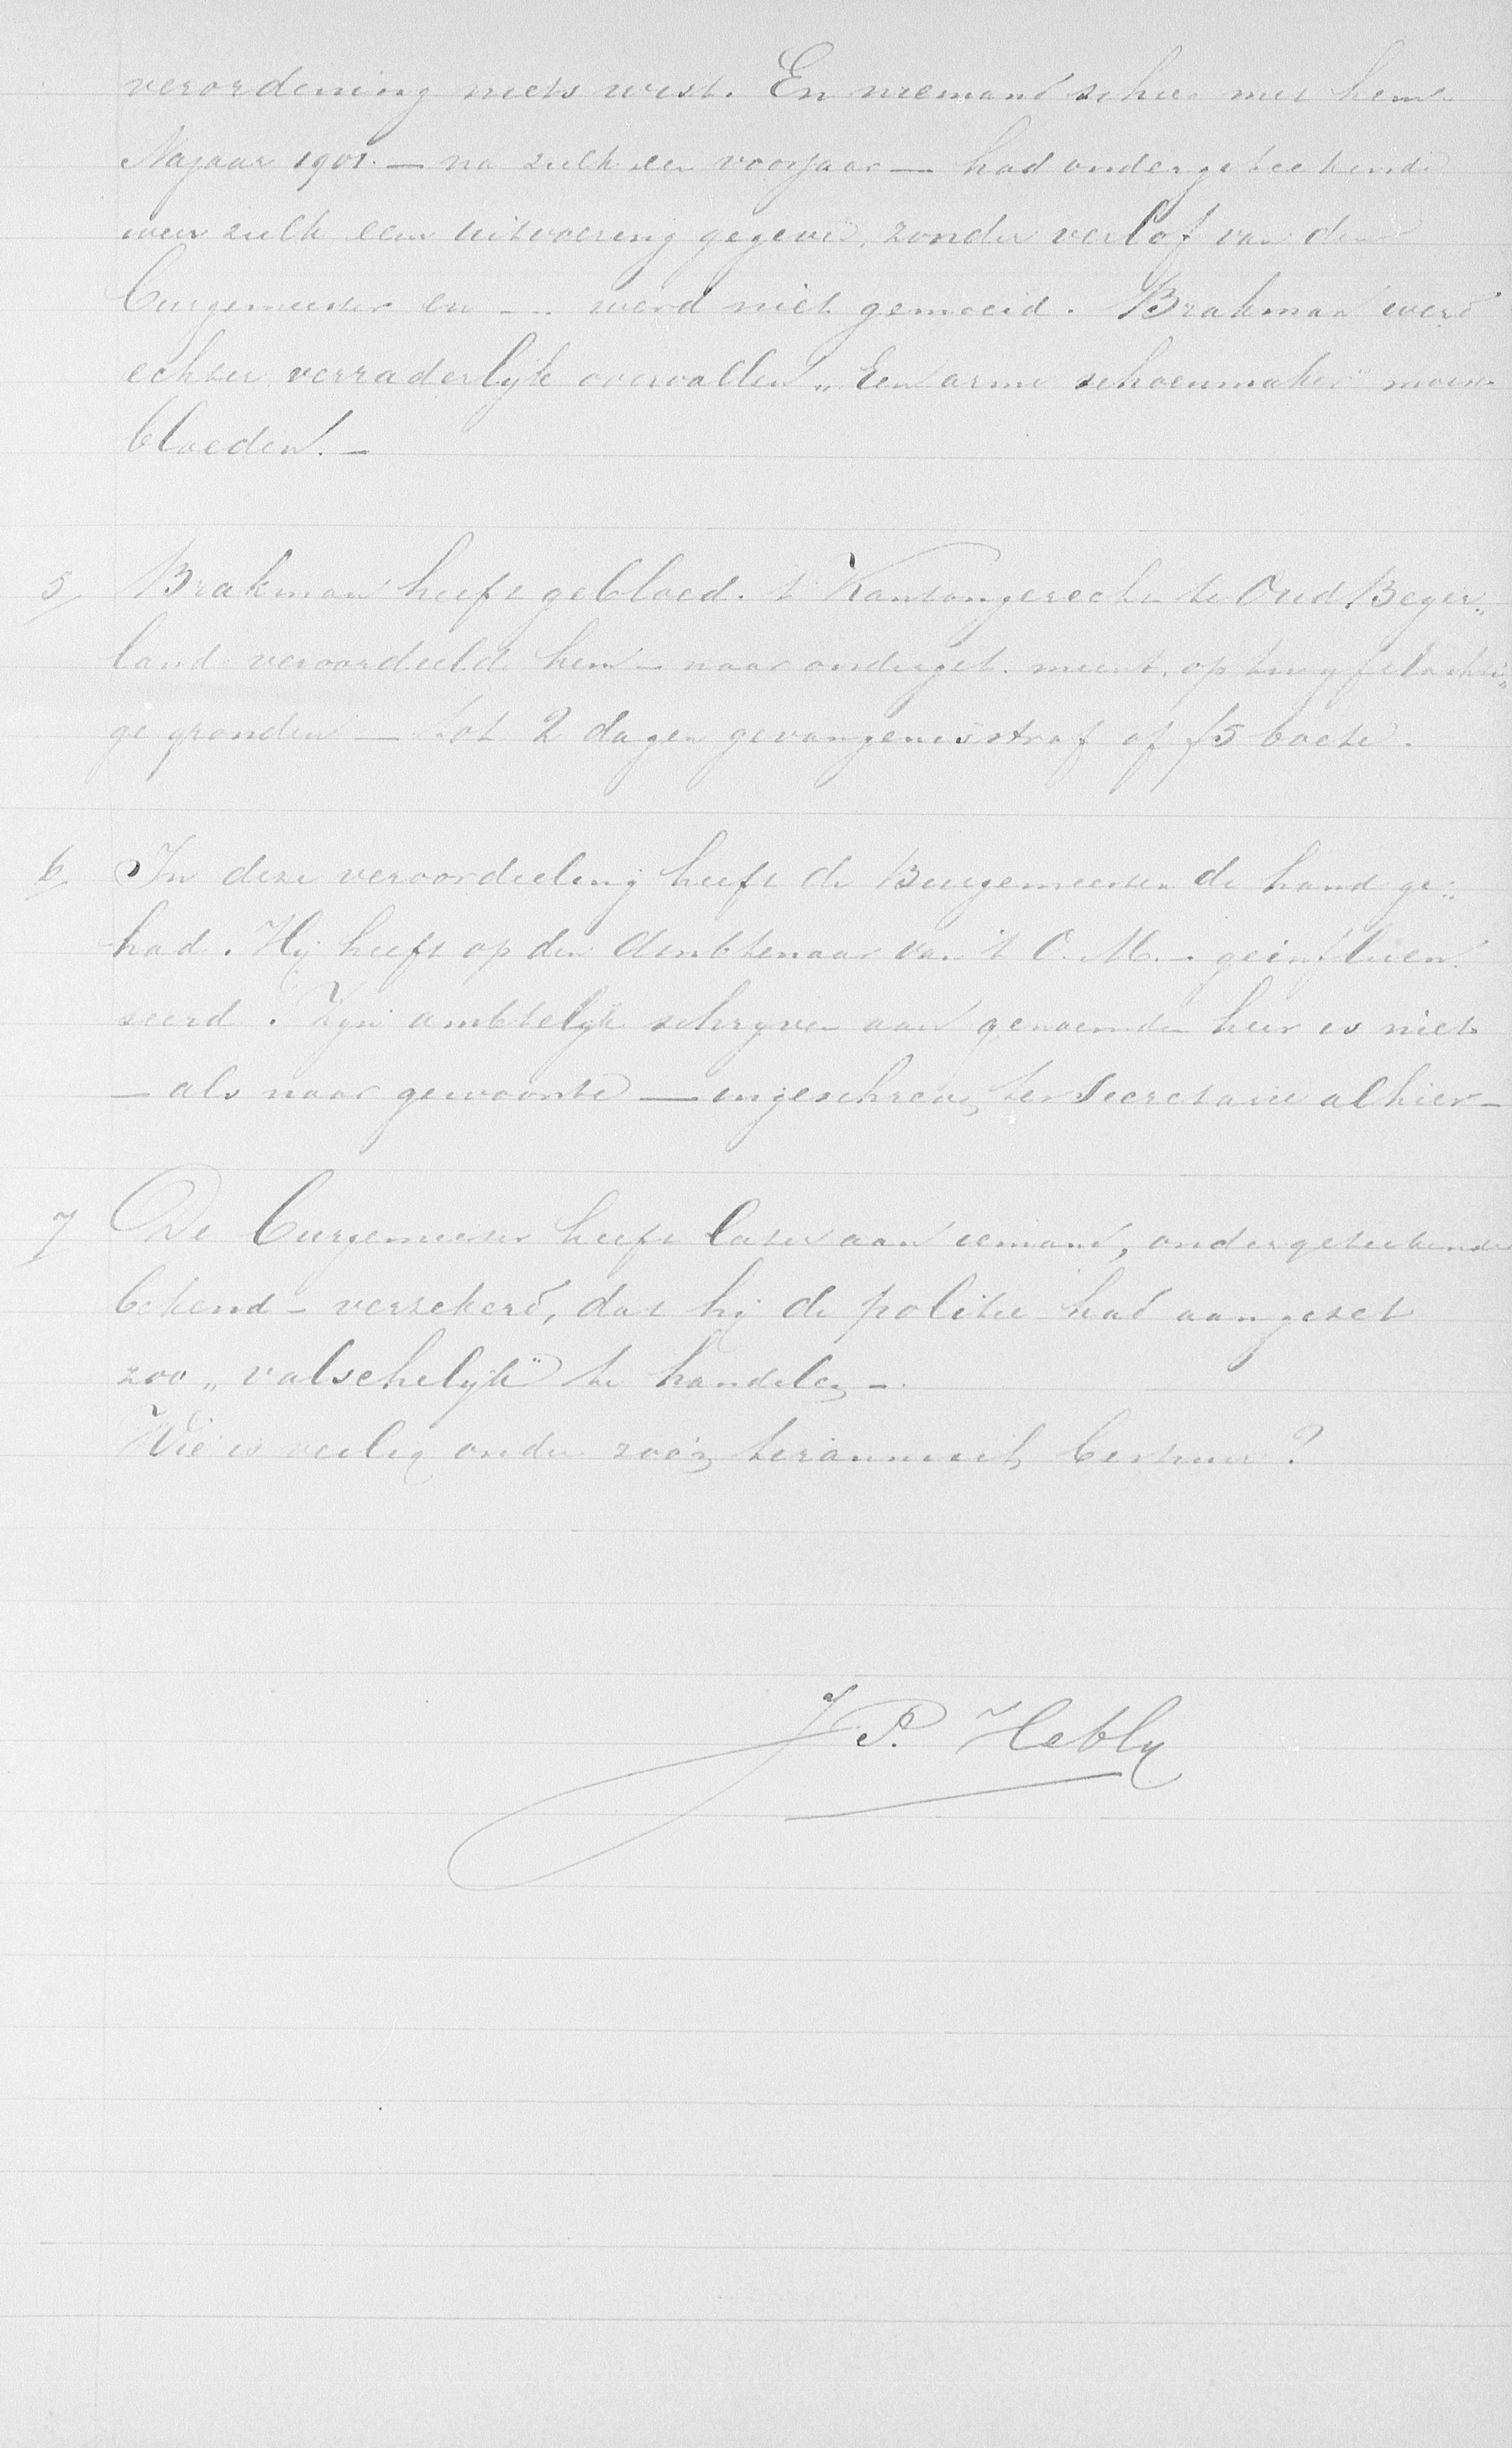 verordening niets wist. En niemand schier met hem.
Najaar 1901. — na zulk een voorjaar — had ondergeteekende
weer zulk een uitvoering gegeven, zonder verlof van den
burgemeester en -.. werd niet gemoeid. Brakman werd
echter verraderlijk overvallen „Een arme schoenmaker" moest
bloeden. —
5/ Brakman heeft gebloed. 't Kantongerecht te Oud Beyer„
land veroordeelde hem — naar onderget. meent, op twyfelachti„
ge gronden — tot 2 dagen gevangenisstraf of f5 boete.
6/ In deze veroordeeling heeft de Burgemeester de hand ge„
had. Hij heeft op den Ambtenaar van 't O. M. - geinfluen„
seerd. Zyn ambtelyk schryven aan genoemden heer is niet
— als naar gewoonte — ingeschreven ter Secretarie alhier —
7/ De burgemeester heeft later aan iemand, ondergeteekende
bekend - verzekerd, dat hij de politie had aangezet
zoo „valschelyk" te handelen -.
Wie is veilig onder zoo'n tiranniek bestuur?
J P. Hebly